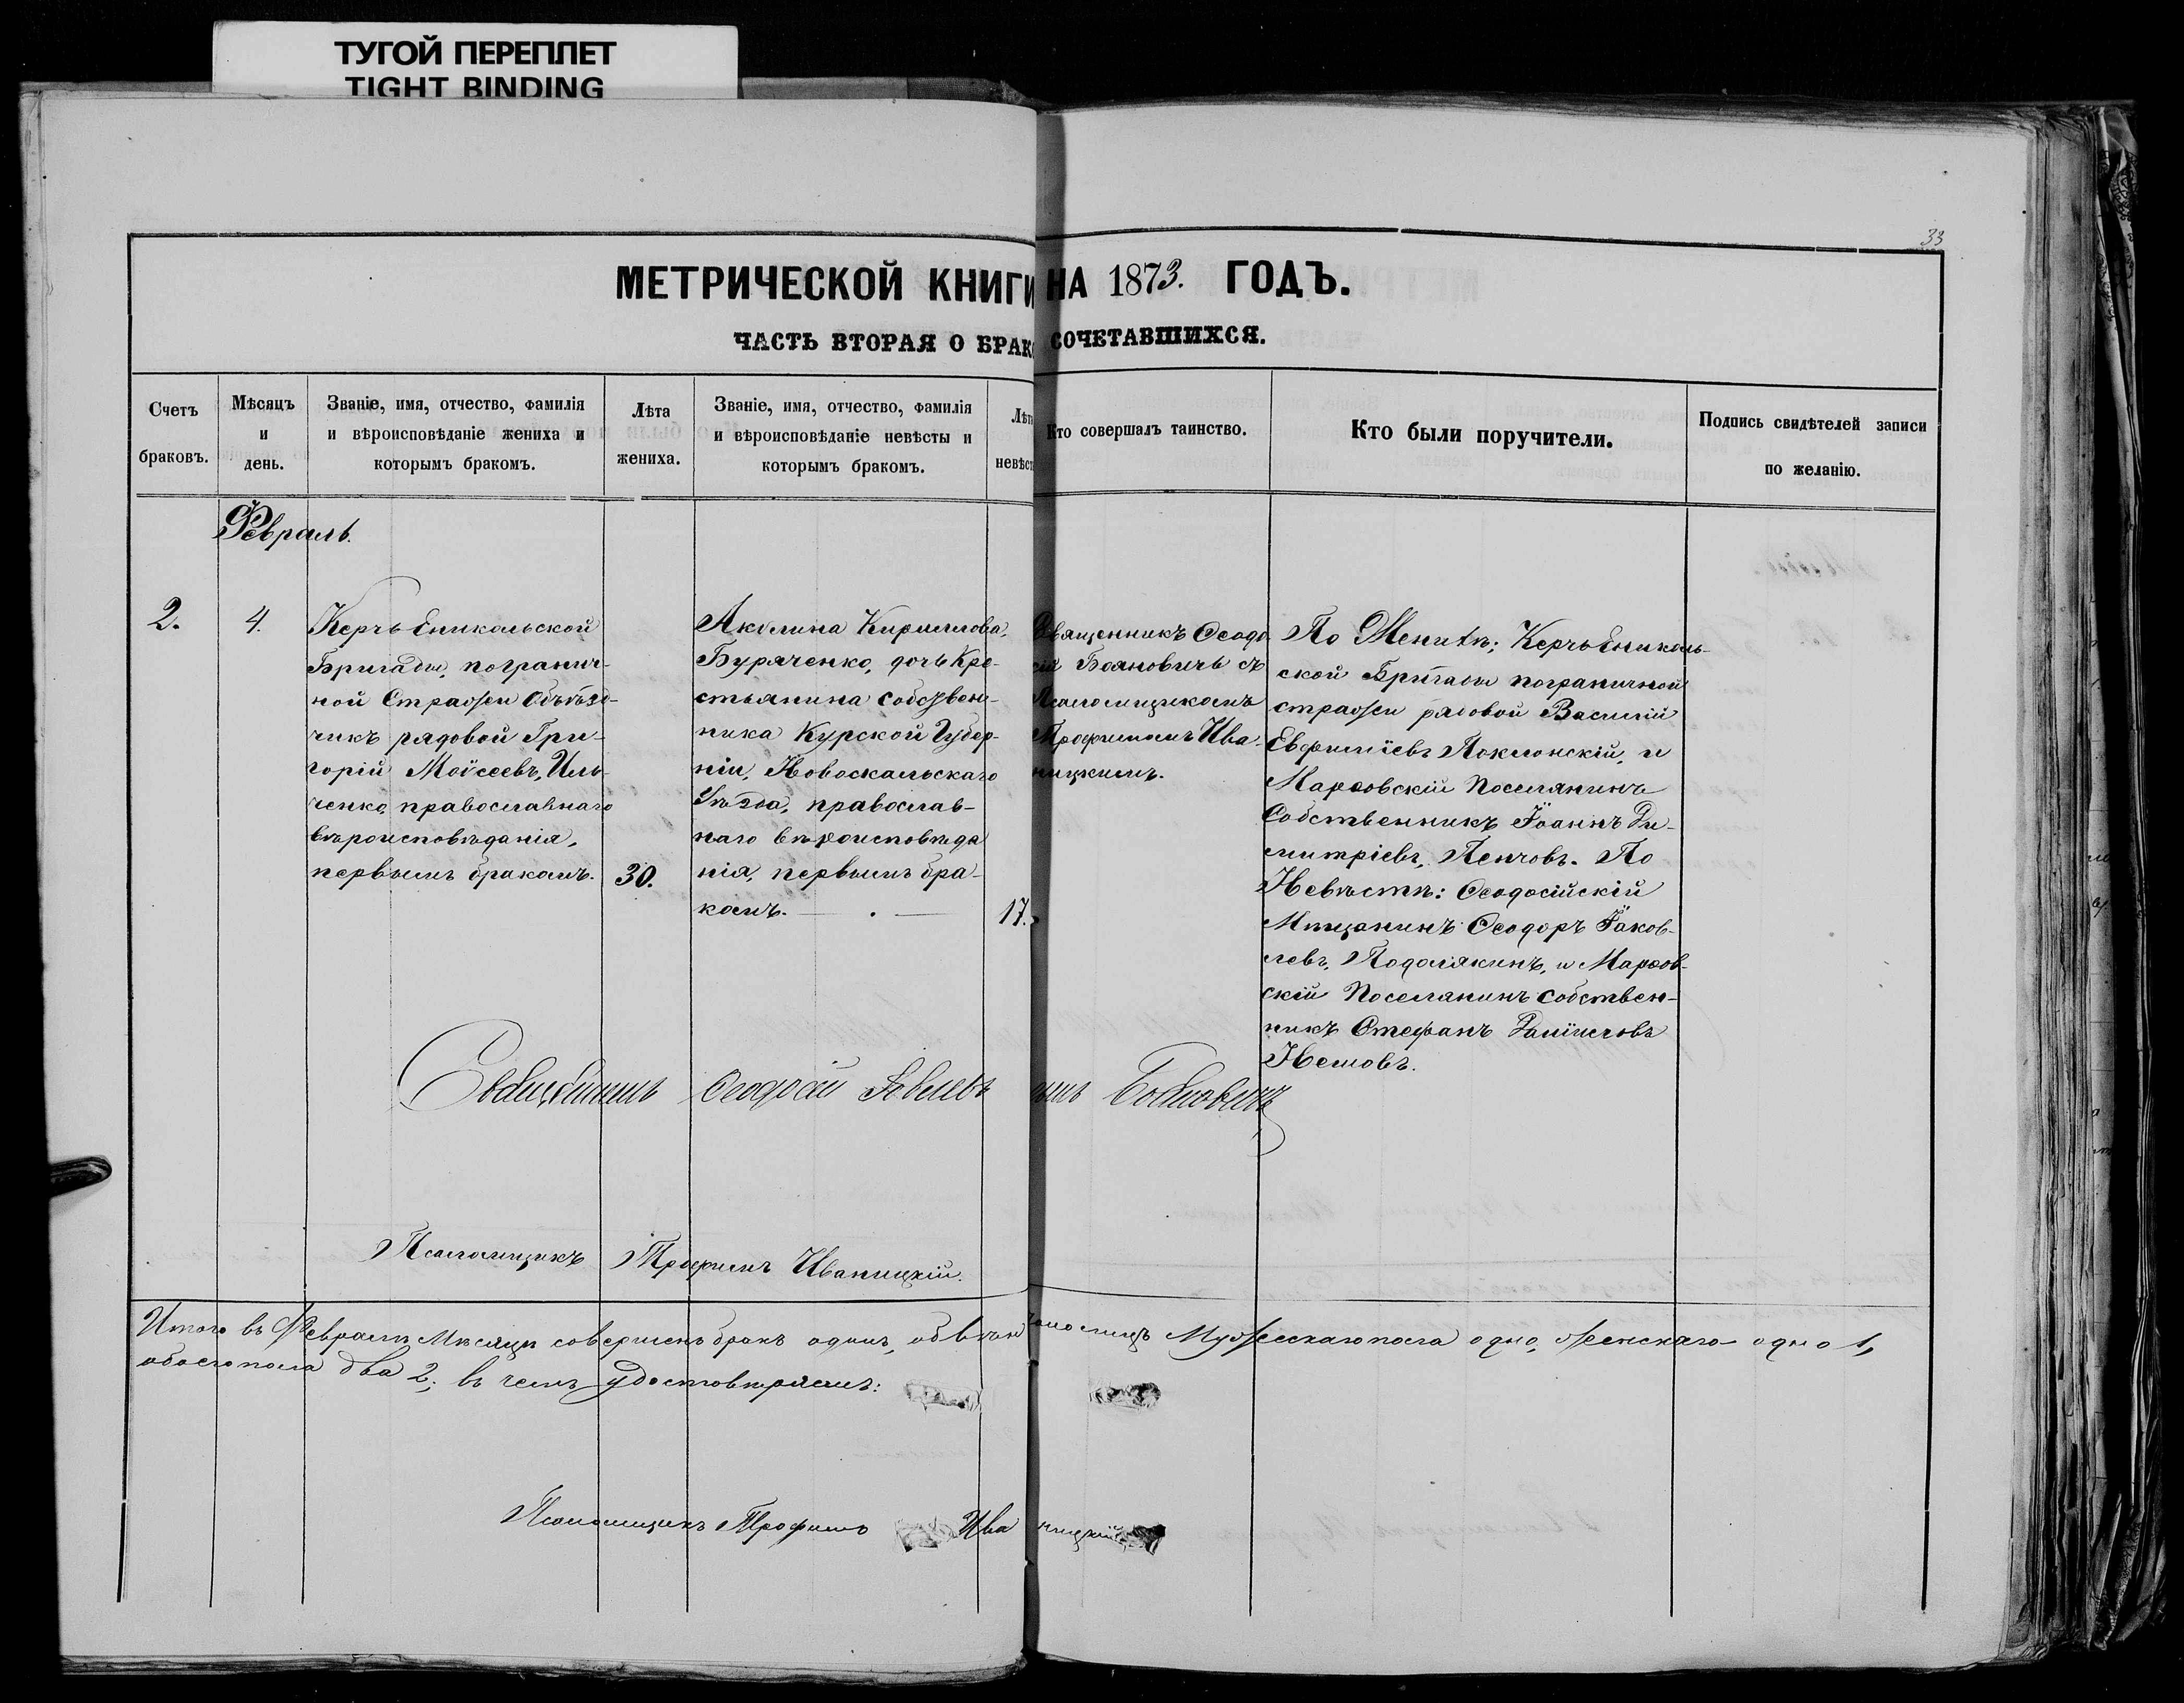 ТУГОЙ ПЕРЕПЛЕТ
TIGHT BINDING
33
МЕТРИЧЕСКОЙ КНИГИ НА 1873. ГОДЪ.
ЧАСТЬ ВТОРАЯ О БРАКОСОЧЕТАВШИХСЯ.
Счетъ
браковъ.
Мѣсяцъ
и
день.
Званіе, имя, отчество, фамилія
и вѣроисповѣданіе жениха и
которымъ бракомъ.
Лѣта
жениха.
Званіе, имя, отчество, фамилія
и вѣроисповѣданіе невѣсты и
которымъ бракомъ.
Лѣта
невѣст
Кто совершалъ таинство.
Кто были поручители.
Подпись свидѣтелей записи
по желанію.
Февраль.
2.
4.
Керчь Еникольской
Бригады, погранич-
ной Стражи Объѣзд-
чикъ рядовой Гри-
горій Моѵсеевъ, Иль-
ченко, православнаго
вѣроисповѣданія,
первымъ бракомъ.
30.
Акилина Кириллова,
Буряченко, дочь Кре-
стьянина собствен-
ника Курской Губер-
ніи, Новоскальскаго
Уѣзда, православ-
наго вѣроисповѣда
нія, первымъ бра-
комъ.
17.
Священникъ Ѳеодо
сій Бояновичь съ
Псаломщикомъ
Трофимомъ Ива-
ницкимъ.
По Женихѣ; Керчь Ениколь-
ской Бригады пограничной
стражи рядовой Василій
Евфиміевъ Поклонскій, и
Марѳовскій Поселянинъ
Собственникъ Іоаннъ Ди-
митріевъ, Пенчовъ. По
Невѣстѣ: Ѳеодосійскій
Мѣщанинъ Ѳеодоръ Іаков-
левъ, Подолякинъ, и Марѳов-
скій Поселянинъ собствен-
никъ Стефанъ Даніиловъ
Немовъ.
Священникъ Ѳеодосій Бояновичъ
Псаломщикъ Трофимъ Иваницкій.
Итого въ Февралѣ Мѣсяцѣ совершенъ бракъ одинъ, лицъ Мужескаго пола одно, женскаго одно 1,
обоего пола два 2; въ чемъ удостовѣряемъ:
Псаломщикъ Трофимъ Иваницкій